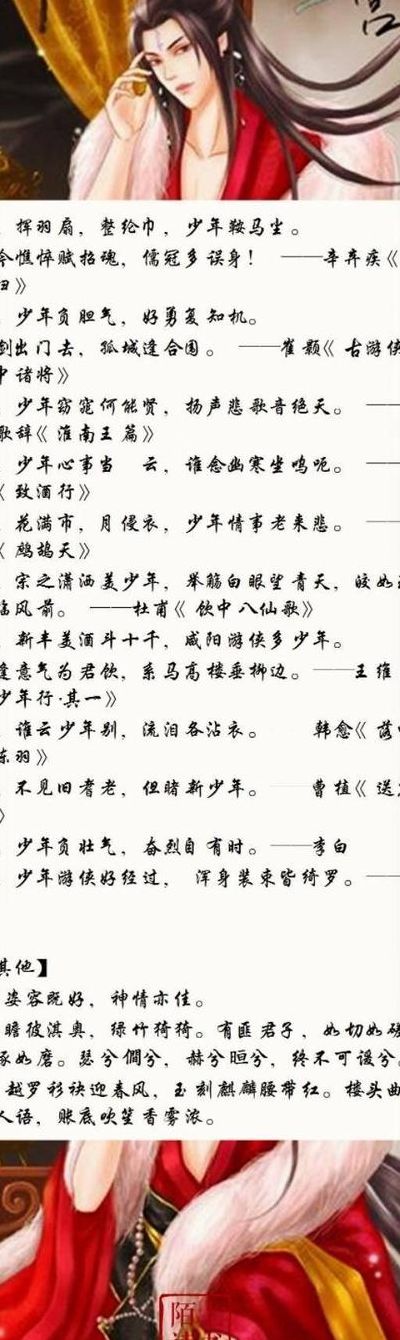 宫
、挥羽扇，整纶巾，少年鞍马尘。
今憔悴赋招魂，儒冠多误身！ ——辛弃疾《
归》
、少年负胆气，好勇复知机。
剑出门去，孤城逢合围。 ——崔颢《古游侠
中诸将》
、少年窈窕何能贤，扬声悲歌音绝天。 ——
歌辞《淮南王篇》
、少年心事当 云，谁念幽寒坐呜呃。 ——
《致酒行》
、花满市，月侵衣，少年情事老来悲。 ——
《鹧鸪天》
、宗之潇洒美少年，举觞白眼望青天，皎如
临风前。 ——杜甫《饮中八仙歌》
、新丰美酒斗十千，咸阳游侠多少年。
逢意气为君饮，系马高楼垂柳边。——王维
少年行·其一》
、谁云少年别，流泪各沾衣。 韩愈《落
陈羽》
、不见旧耆老，但睹新少年。 曹植《送
》
、少年负壮气，奋烈自有时。——李白
、少年游侠好经过， 浑身装束皆绮罗。——
其他】
姿容既好，神情亦佳。
瞻彼淇奥，绿竹猗猗。有匪君子，如切如磋
琢如磨。瑟兮僩兮，赫兮咺兮，终不可谖兮。
越罗衫袂迎春风，玉刻麒麟腰带红。楼头曲
人语，账底吹笙香雾浓。
陌